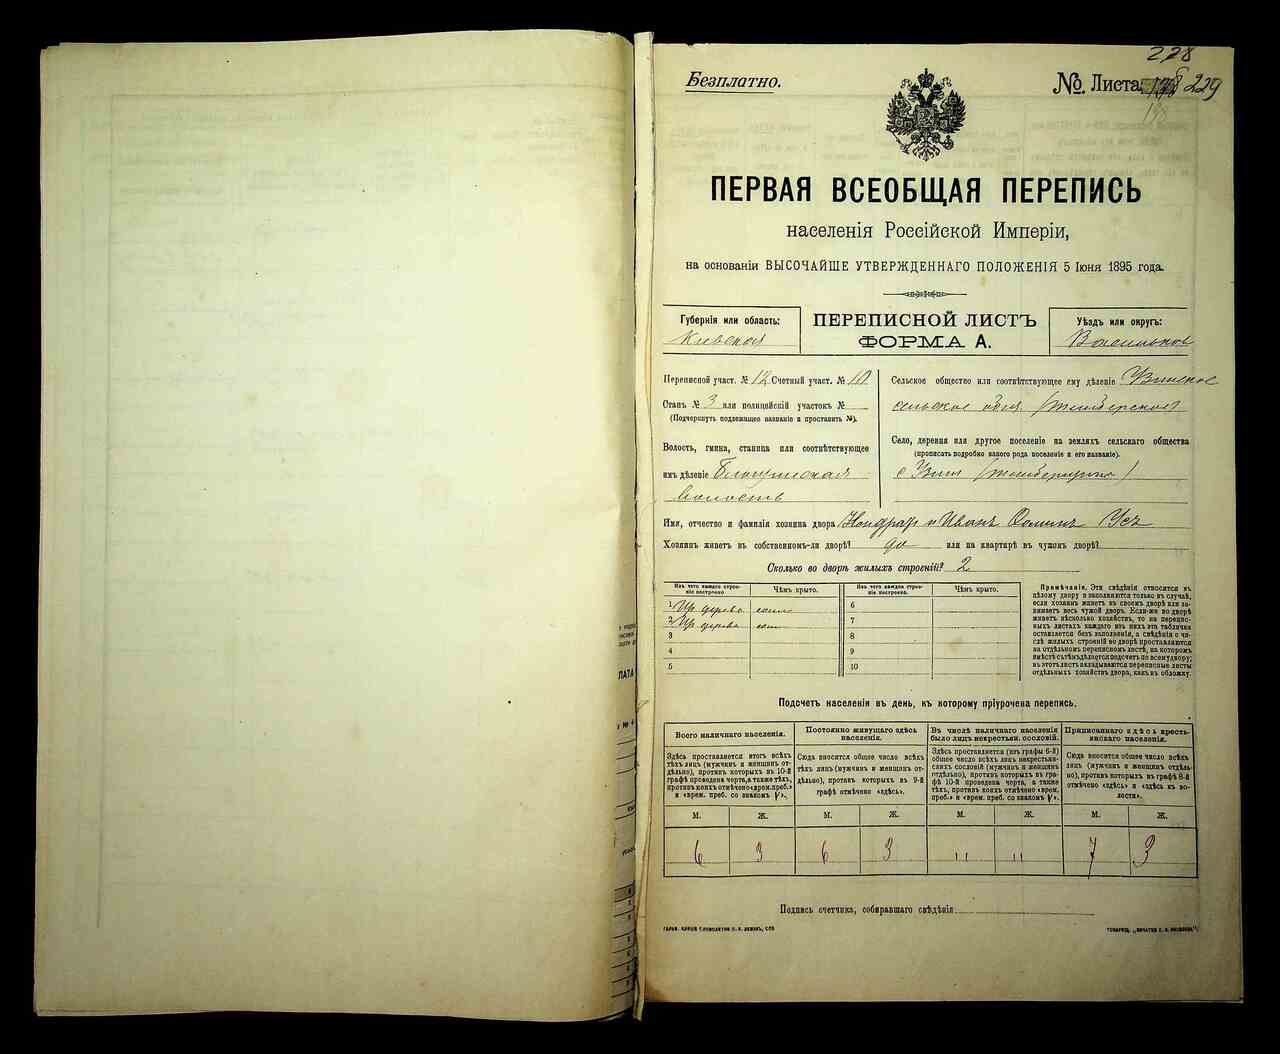 228
Безплатно.
№. Листа 229
ПЕРВАЯ ВСЕОБЩАЯ ПЕРЕПИСЬ
населенія Россійской Имперіи,
на основаніи ВЫСОЧАЙШЕ УТВЕРЖДЕННАГО ПОЛОЖЕНІЯ 5 Іюня 1895 года.
Губернія или область:
Киевская
ПЕРЕПИСНОЙ ЛИСТЪ
ФОРМА А.
Уѣздъ или округъ:
Васильков
Переписной участ. № 12 Счетный участ. №
Станъ № 3 или полицейскій участокъ №
(Подчеркнуть подлежащее названіе и проставить №).
Волость, гмина, станица или соотвѣтствующее
имъ дѣленіе
Волость
Сельское общество или соотвѣтствующее ему дѣленіе Узинское
сельское
Село, деревня или другое поселеніе на земляхъ сельскаго общества
(прописать подробно какого рода поселеніе и его названіе).
с. Узин
Имя, отчество и фамилія хозяина двора Кондрат и Иванъ Усъ
Хозяинъ живетъ въ собственномъ-ли дворѣ? да или на квартирѣ въ чужомъ дворѣ?
Сколько во дворѣ жилыхъ строеній? 2
Изъ чего каждое строеніе построено
Чѣмъ крыто.
Изъ чего каждое строеніе построено
Чѣмъ крыто.
1 Из дерева
2 Из дерева
3
4
5
6
7
8
9
10
Примѣчаніе. Эти свѣдѣнія относятся къ
цѣлому двору и заполняются только въ случаѣ,
если хозяинъ живетъ въ своемъ дворѣ или занимаетъ
весь чужой дворъ. Если-же во дворѣ
живетъ нѣсколько хозяйствъ, то на переписныхъ
листахъ каждаго изъ нихъ эта табличка
оставляется безъ заполненія, а свѣдѣнія о числѣ
жилыхъ строеній во дворѣ проставляются
на отдѣльномъ переписномъ листѣ, на которомъ
вмѣстѣ съ тѣмъ дѣлается подсчетъ по всему двору;
въ этотъ листъ вкладываются переписные листы
отдѣльныхъ хозяйствъ двора, какъ въ обложку.
Подсчетъ населенія въ день, къ которому пріурочена перепись.
Всего наличнаго населенія.
Здѣсь проставляется итогъ всѣхъ
тѣхъ лицъ (мужчинъ и женщинъ отдѣльно),
противъ которыхъ въ 10-й
графѣ проведена черта, а также тѣхъ,
противъ коихъ отмѣчено «врем. преб.»
и «врем. преб. со знакомъ V».
Постоянно живущаго здѣсь
населенія.
Сюда вносится общее число всѣхъ
тѣхъ лицъ (мужчинъ и женщинъ отдѣльно),
противъ которыхъ въ 9-й
графѣ отмѣчено «здѣсь».
Въ числѣ наличнаго населенія
было лицъ некрестьян. сословій.
Здѣсь проставляется (изъ графы 6-й)
общее число всѣхъ лицъ некрестьянскихъ
сословій (мужчинъ и женщинъ
отдѣльно), противъ которыхъ въ графѣ
10-й проведена черта, а также
тѣхъ, противъ коихъ отмѣчено «врем.
преб.» и «врем. преб. со знакомъ V».
Приписаннаго здѣсь крестьянскаго
населенія.
Сюда вносится общее число всѣхъ
лицъ (мужчинъ и женщинъ отдѣльно),
противъ которыхъ въ графѣ 8-й
отмѣчено «здѣсь» и «здѣсь къ волости».
М. Ж. М. Ж. М. Ж. М. Ж.
6 3 6 3 " " 7 3
Подпись счетчика, собиравшаго свѣдѣнія
ЛАТА